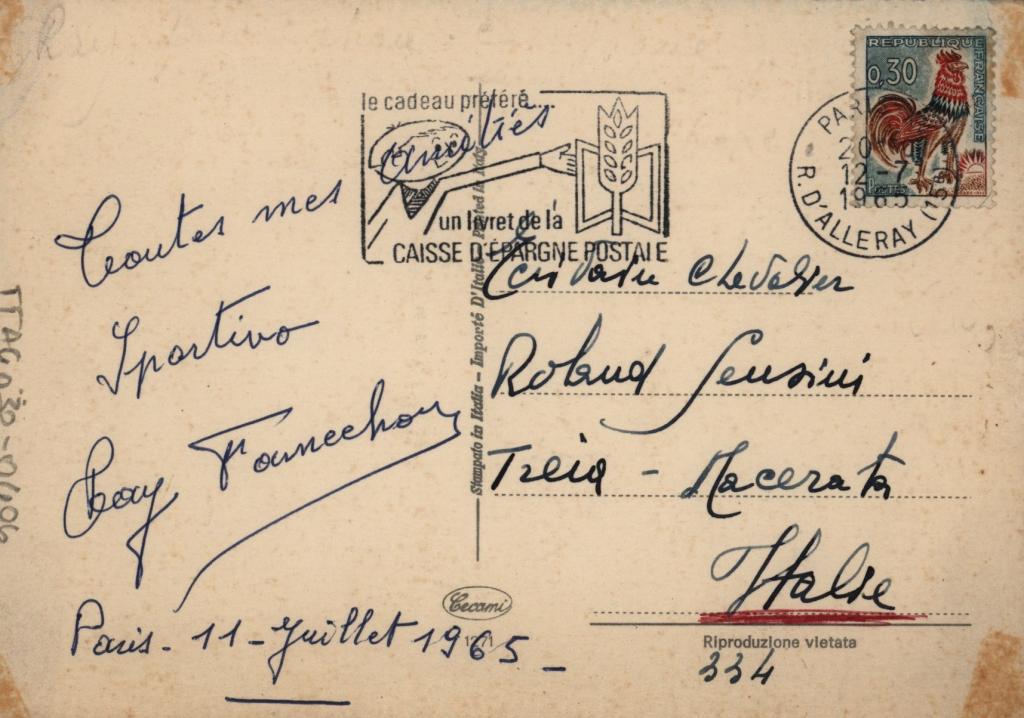 le cadeau préféré...
un livret de la
CAISSE D'ÉPARGNE POSTALE
RÉPUBLIQUE FRANÇAISE
0,30
POSTES
PARIS
20
12-7
1965
R. D'ALLERAY (15e)
Toutes mes amitiés
Sportivo
Ray Famechon
Paris - 11 - Juillet 1965 -
Stampato in Italia - Importé D'Italie - Printed in Italy
Cecami
Chevalier
Roland Sensini
Treia - Macerata
Italie
Riproduzione vietata
334
TTAG 030-01606